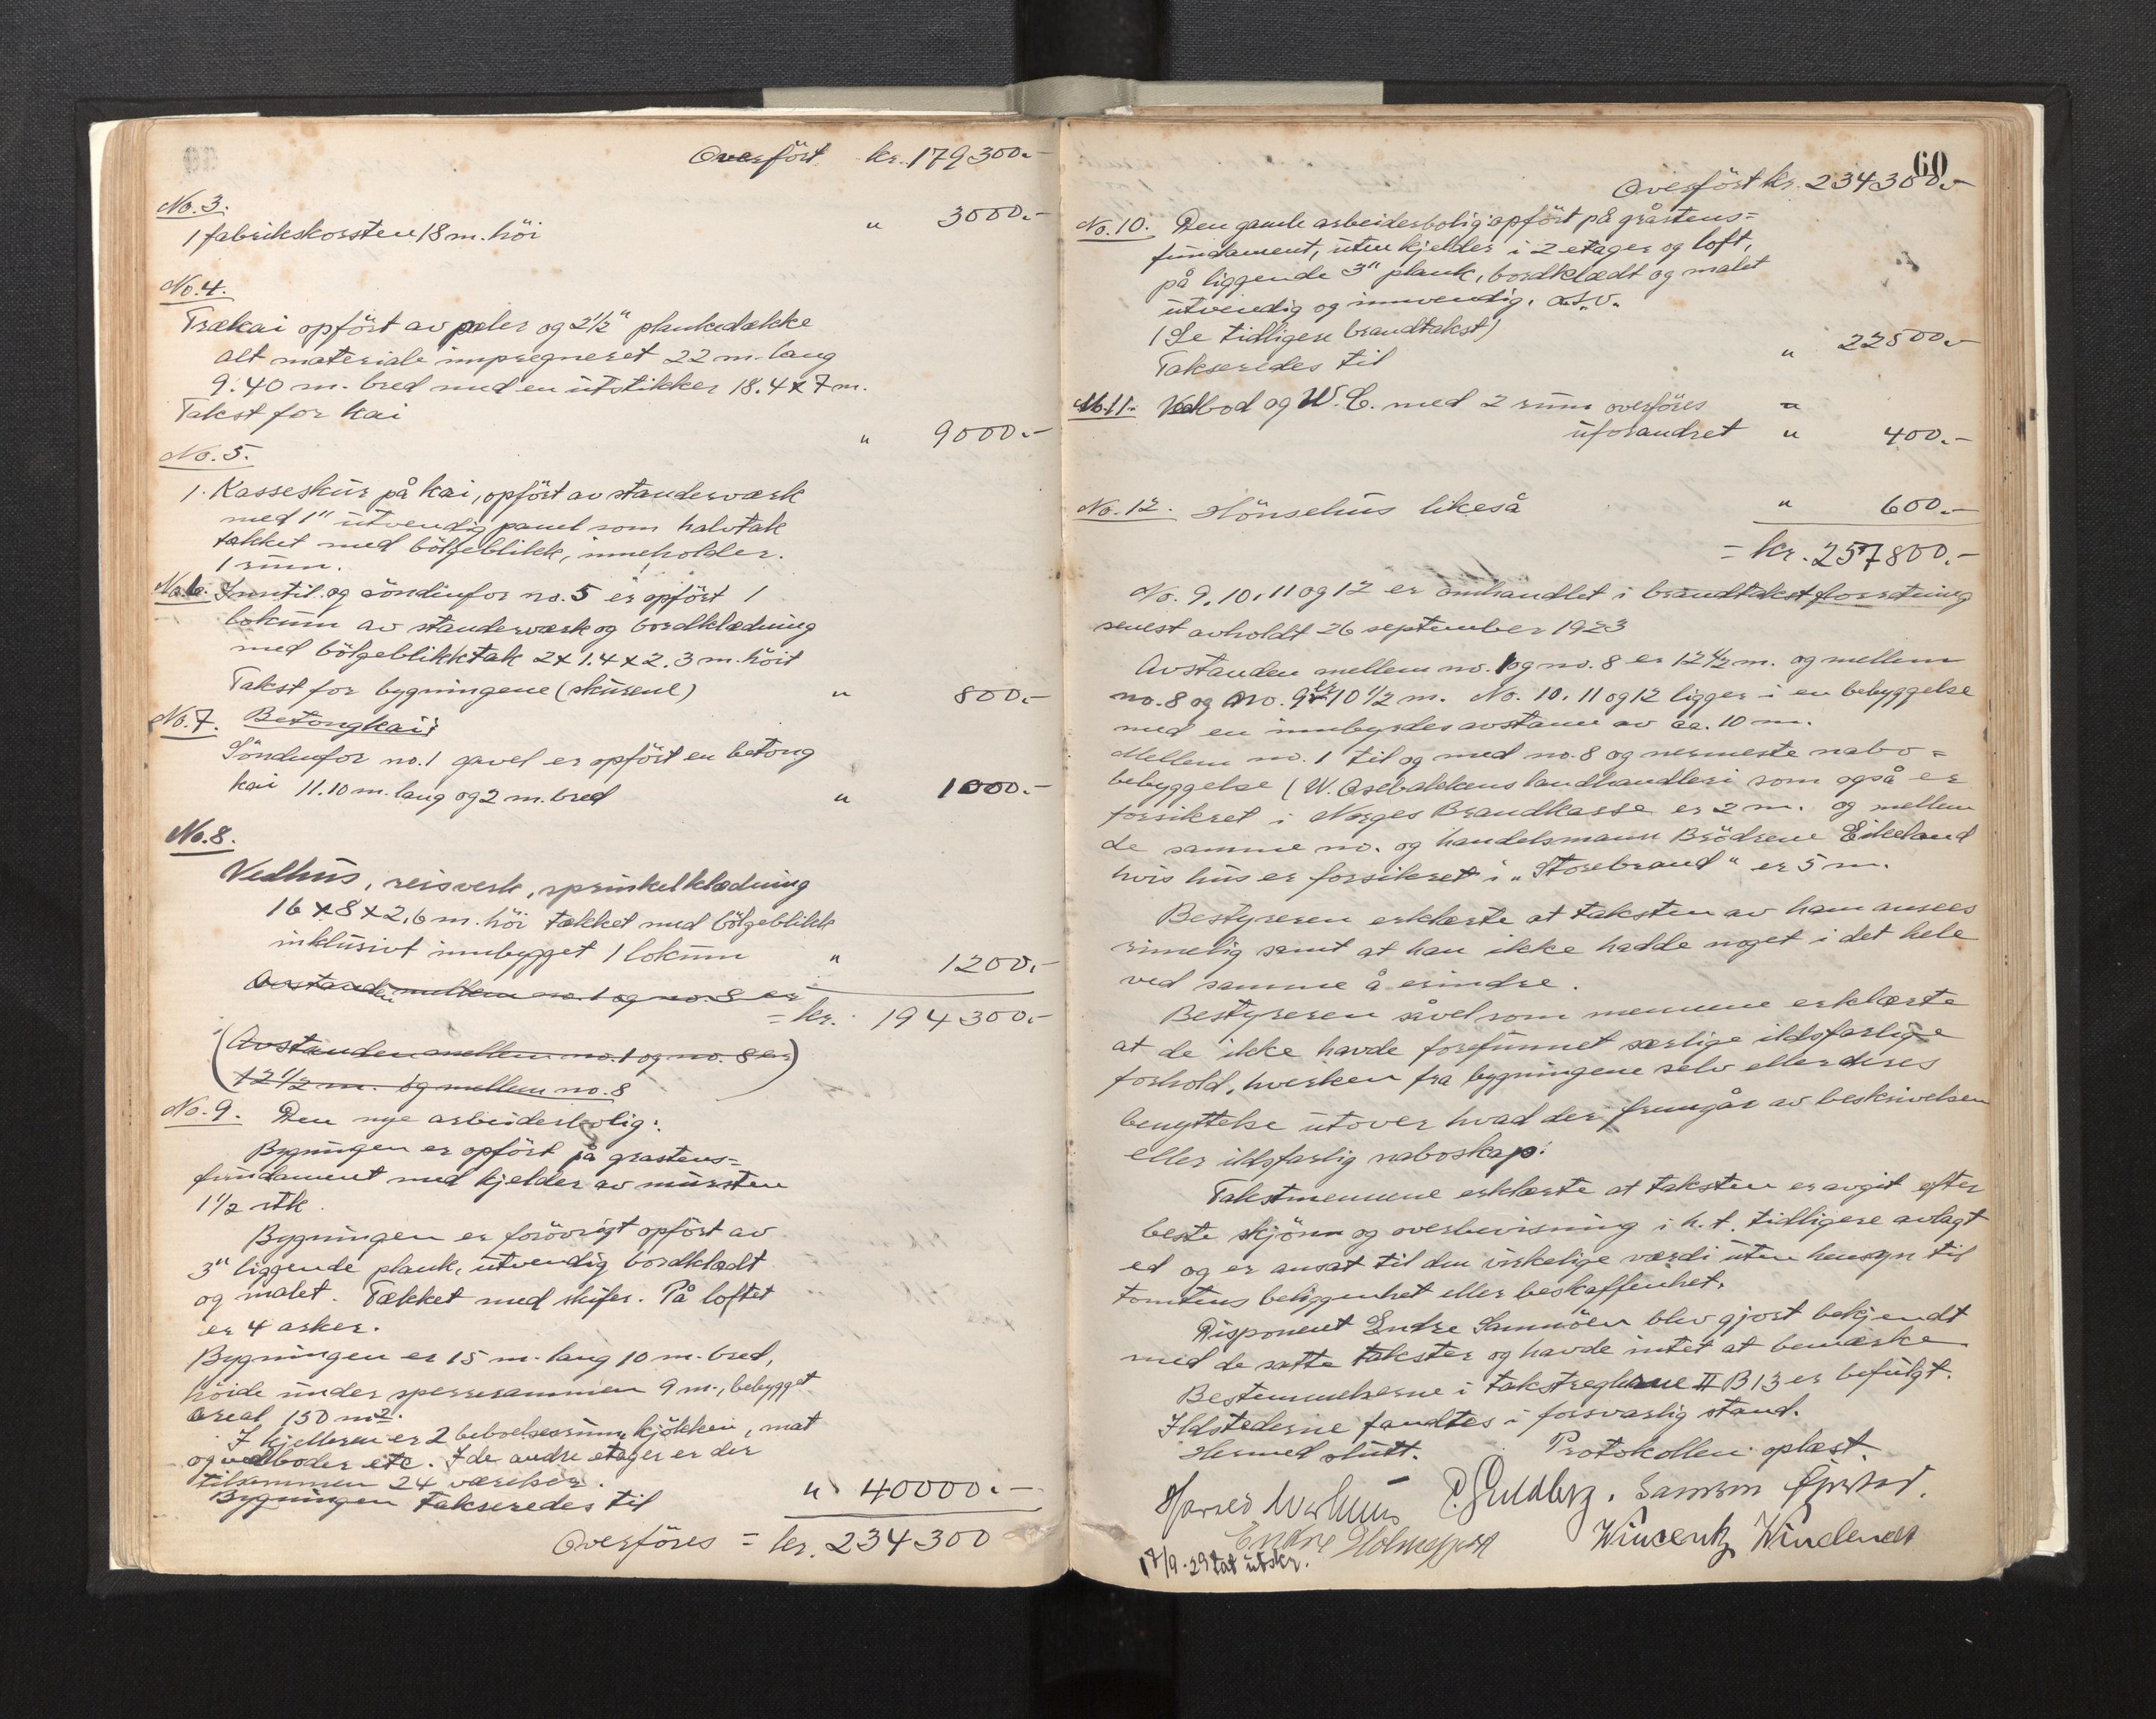 Overført kr. 179300.-
No. 3.
1 fabrikskorsten 18 m. höi " 3000.-
No. 4.
Trækai opfört av peler og 2 1/2" plankedække
alt materiale impregneret 22 m. lang
9.40 m. bred med en utstikker 18.4 x 7 m.
Takst for kai " 9000.-
No. 5.
1. Kasseskur på kai, opfört av standerværk
med 1" utvendig panel som halvtak
tækket med bölgeblikk, inneholder.
1 rum.
No. 6. Inntil og söndenfor no. 5 er opfört 1
lokum av standerværk og bordklædning
med bölgeblikktak 2 x 1.4 x 2.3 m. höit
Takst for bygningene (skurene) " 800.-
No. 7. Betongkai:
Söndenfor no. 1 gavel er opfört en betong
kai 11.10 m. lang og 2 m. bred " 1000.-
No. 8.
Vedhus, reisverk, sprinkelklædning
16 x 8 x 2,6 m. höi tækket med bölgeblikk
inklusivt innbygget 1 lokum " 1200.-
Avstanden mellem no. 1 og no. 8 er
= kr. 194300.-
(Avstanden mellem no. 1 og no. 8 er
12 1/2 m. og mellem no. 8)
No. 9. Den nye arbeiderbolig:
Bygningen er opfört på grastens=
fundament med kjelder av mursten
1 1/2 stk.
Bygningen er forövrigt opfört av
3" liggende plank, utvendig bordklædt
og malet. Tækket med skifer. På loftet
er 4 arker.
Bygningen er 15 m. lang 10 m. bred,
höide under sperresammen 9 m., bebygget
areal 150 m2.
I kjelleren er 2 beboelsesrum, kjökken, mat
og vedboder etc. I de andre etager er der
tilsammen 24 værelser.
Bygningen takseredes til " 40000.-
Overföres = kr. 234300
60
Overfört kr. 234300.-
No. 10. Den gamle arbeiderbolig opfört på gråstens=
fundament, uten kjelder i 2 etager og loft,
på liggende 3" plank, bordklædt og malet
utvendig og innvendig. o.s.v.
(Se tidligere brandtakst)
Takseredes til " 22500.-
No. 11. Vedbod og W.C. med 2 rum overföres "
uforandret " 400.-
No. 12. Hönsehus likeså " 600.-
= kr. 257800.-
No. 9, 10, 11 og 12 er omhandlet i brandtakstforretning
senest avholdt 26 september 1923
Avstanden mellem no. 1 og no. 8 er 12 1/2 m. og mellem
no. 8 og no. 9 er 10 1/2 m. No. 10, 11 og 12 ligger i en bebyggelse
med en innbyrdes avstann av ca. 10 m.
Mellem no. 1 til og med no. 8 og nermeste nabo=
bebyggelse (W. Osebakkens landhandleri som også er
forsikret i Norges Brandkasse er 2 m. og mellem
de samme no. og handelsmann Brödrene Eikeland
hvis hus er forsikret i "Storebrand" er 5 m.
Bestyreren erklærte at taksten av ham ansees
rimelig samt at han ikke hadde noget i det hele
ved samme å erindre.
Bestyreren såvel som mennene erklærte
at de ikke havde forefunnet særlige ildsfarlige
forhold, hverken fra bygningene selv eller deres
benyttelse utover hvad der fremgår av beskrivelsen
eller ildsfarlig naboskap:
Takstmennene erklærte at taksten er avgit efter
beste skjönn og overbevisning i h. t. tidligere avlagt
ed og er ansat til den virkelige værdi uten hensyn til
tomtens beliggenhet eller beskaffenhet.
Disponent Endre Samnöen blev gjort bekjendt
med de satte takster og havde intet at bemærke
Bestemmelserne i takstreglerne II B 13 er befulgt.
Ildstederne fandtes i forsvarlig stand.
Hermed slutt. Protokollen oplæst.
P. Guldberg. Samson
Endre
Wincentz
17/9.29 tat utskr.